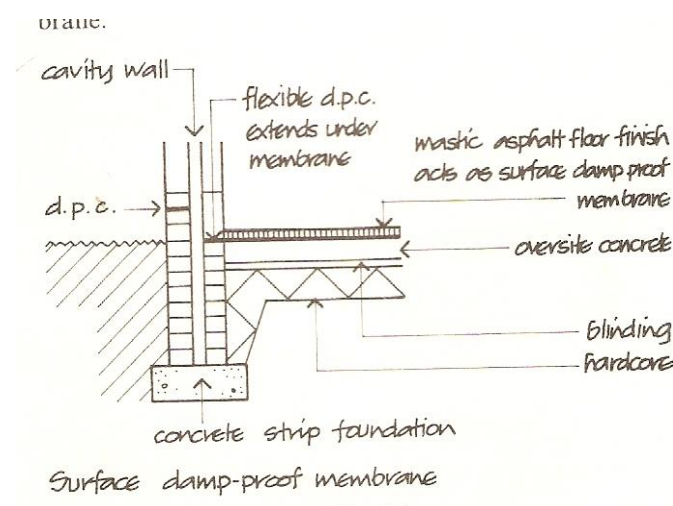 brane.
cavity wall
flexible d.p.c.
extends under
membrane
mastic asphalt floor finish
acts as surface damp proof
membrane
d.p.c.
oversite concrete
blinding
hardcore
concrete strip foundation
Surface damp-proof membrane